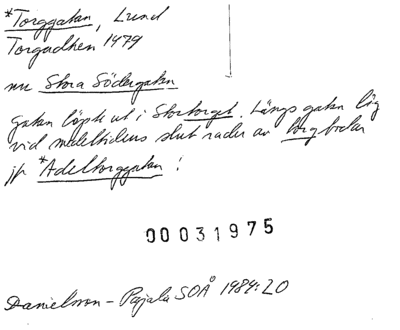 *Torggatan, Lund
Torgadhen 1479
nu Stora Södergatan
gatan löpte ut i Stortorget. Längs gatan låg
vid medeltidens slut rader av torgbodar
jfr *Adeltorggatan!
00031975
Danielsson - Pajala SOÅ 1984:20